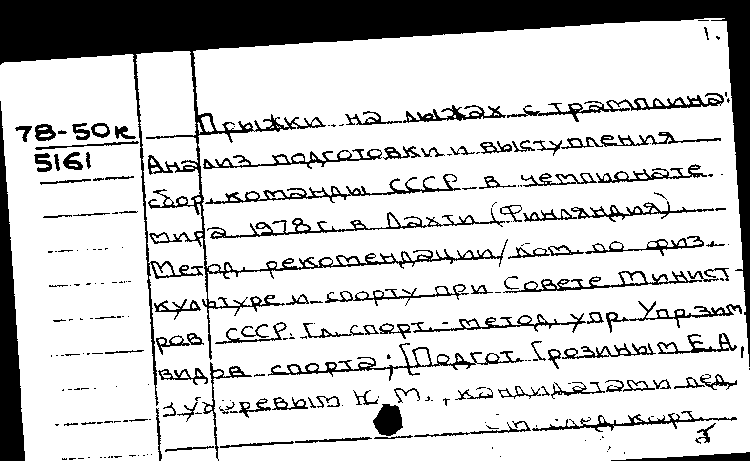 1.
Прыжки на лыжах с трамплина:
78-50к
5161
Анализ подготовки и выступления
сбор. команды СССР в чемпионате
мира 1978 г. в Лахти (Финляндия).
Метод. рекомендации / Ком. по физ.
культуре и спорту при Совете Минист-
ров СССР. Гл. спорт.-метод. упр. Упр. зим.
видов спорта; [Подгот. Грозиным Е.А.,
М., кандидатами пед.
См. след. карт.